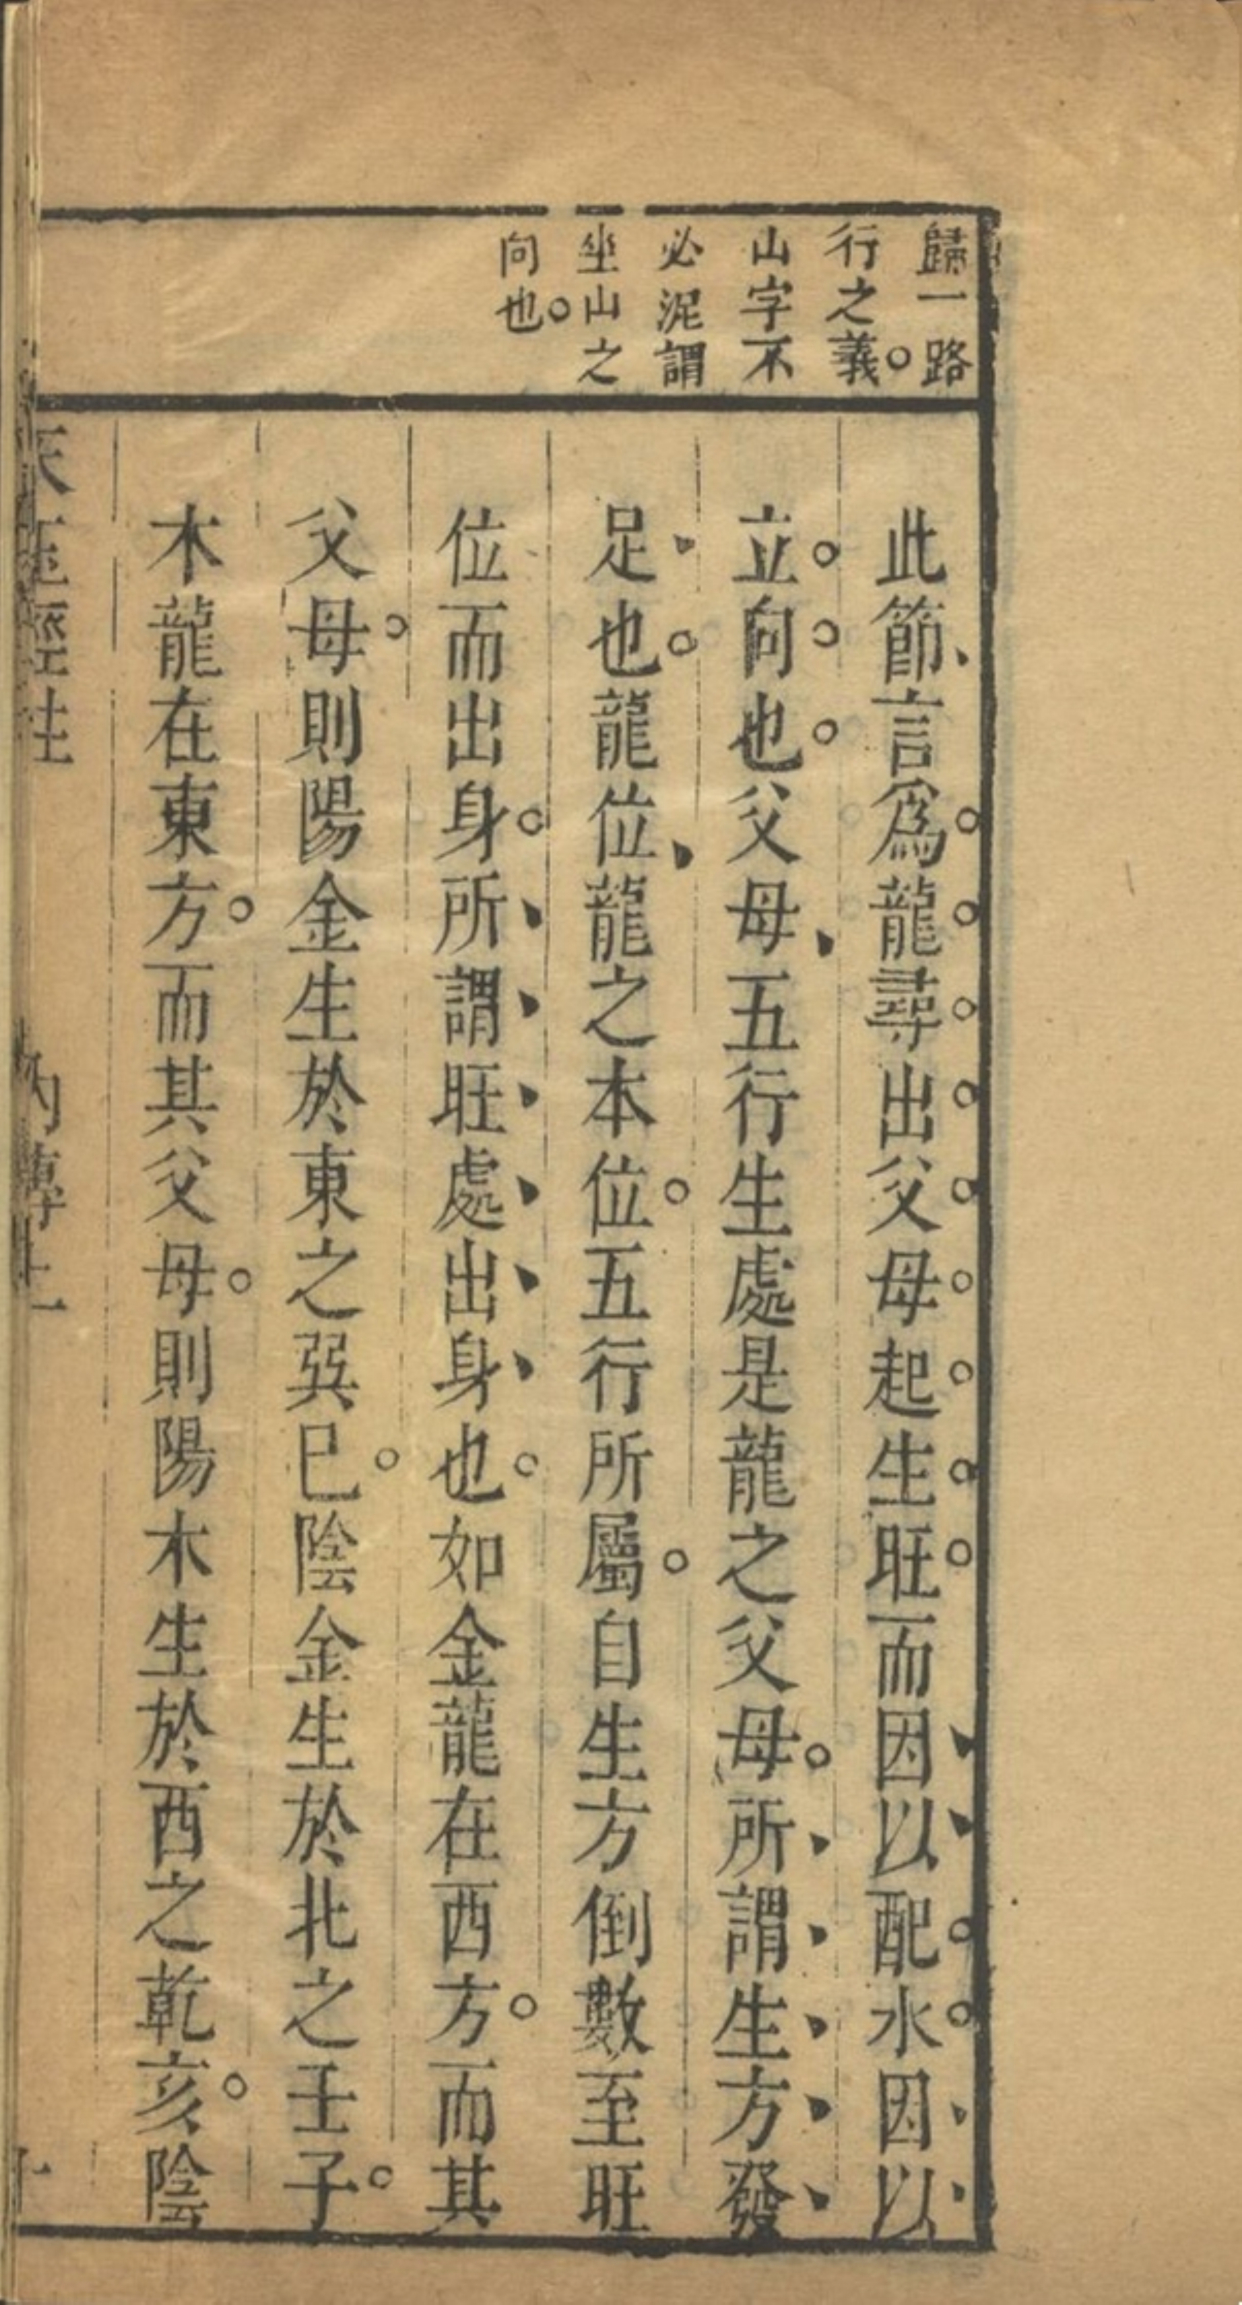 歸一路
行之義。
山字不
必泥謂
坐山之
向也。
此節言爲龍尋出父母起生旺而因以配水因以
立向也父母五行生處是龍之父母。所謂生方發
足也。龍位龍之本位。五行所屬。自生方倒數至旺
位而出身。所謂旺處出身也。如金龍在西方。而其
父母。則陽金生於東之巽巳。陰金生於北之壬子。
木龍在東方。而其父母。則陽木生於西之乾亥。陰
天玉經註 內傳上 十